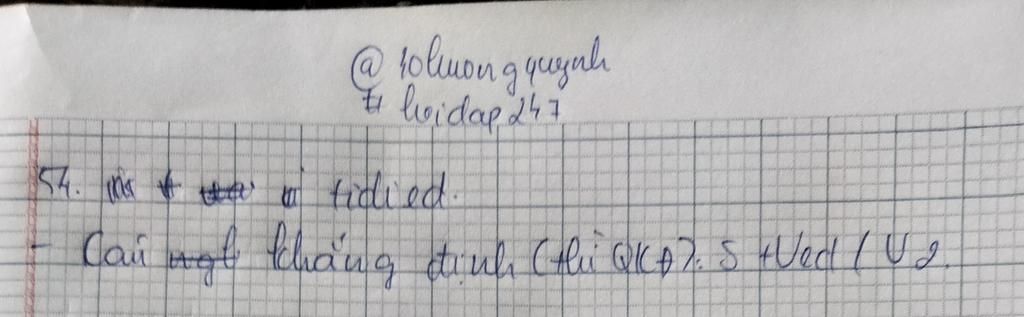 @ 10luongquynh
# hoidap247
54. tidied.
- Câu khẳng định (thì QKĐ): S + Ved / V2.